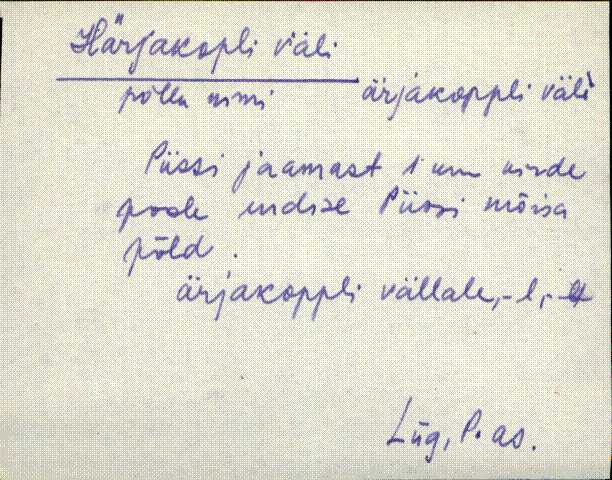 Härjakopli väli
põllu nimi ärjakoppli väli
Püssi jaamast 1 km kirde
poole endise Püssi mõisa
põld.
ärjakoppli vällale, -l, -lt
Lüg, P. as.